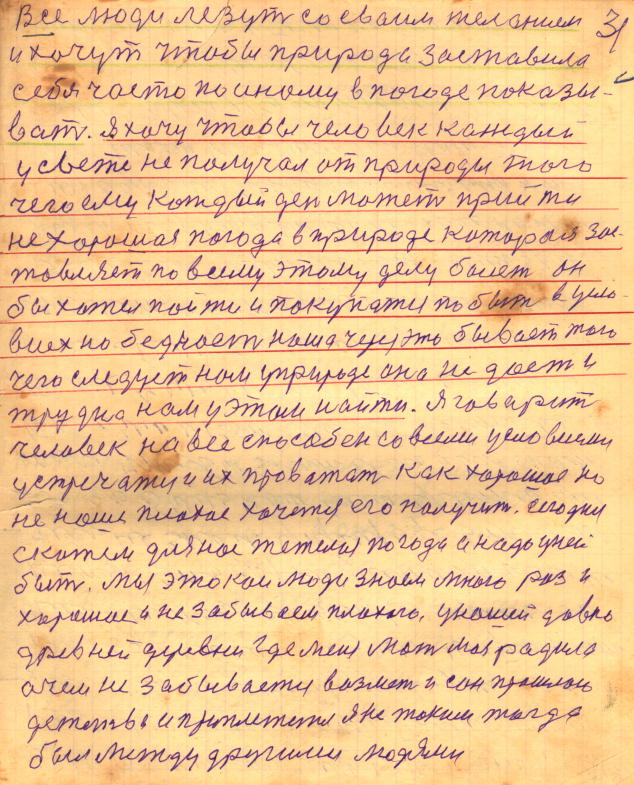 Все люди лезут со своим желанием 31
и хочут чтобы природа заставила
себя часто по иному в погоде показы-
вать. Я хочу чтобы человек каждый
у свете не получал от природы того
чего ему кождый ден может прийти
не хорошая погода в природе которыя зас-
товляет по всему этому делу болет он
бы хотел пойти и покупатя побыт в усло-
виех но бедност наша через это бывает того
чего следует нам у природе она не дает и
трудна нам у этом найти. Я говарит
человек на все способен со всеми условиеми
устречатя и их проважат как хорошое но
не наше плохое хочется его получит. Сегодня
скажем для нас тежелоя погода а надо у ней
быт. Мы это кои люди знаем много раз и
хорошое и не забываем плохого, у нашей давно
древней деревни где меня мат моя радила
о чем не забывается возмет и сон прошлого
детства и приплетется я не таким тагда
был между другими людями